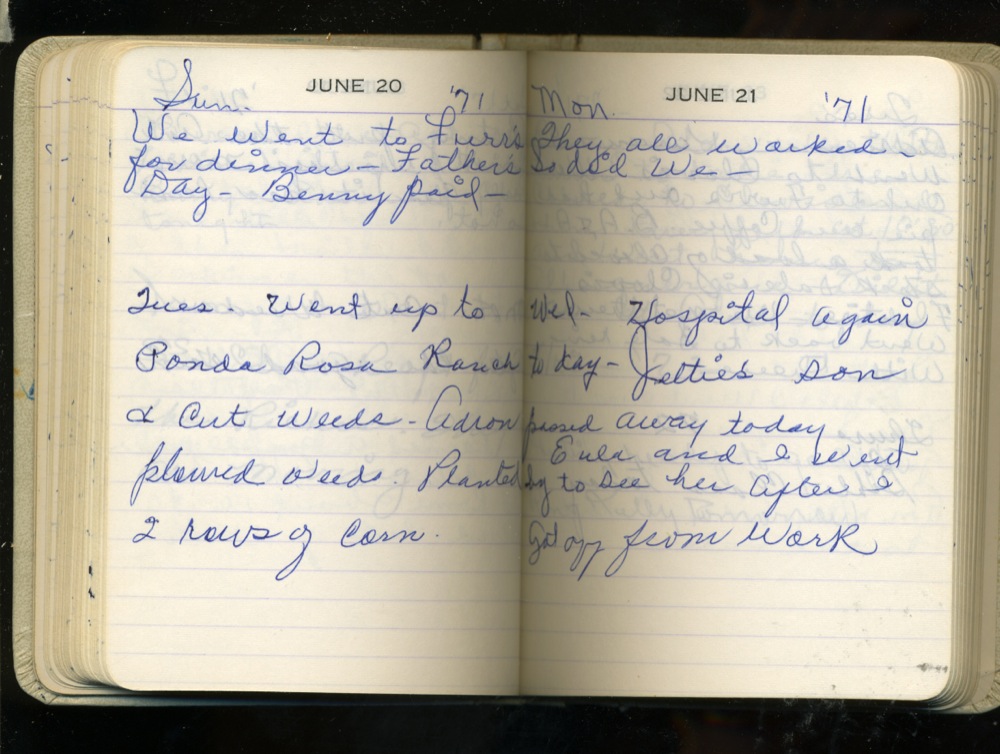 JUNE 20
Sun. '71
We went to Furr's
for dinner - Father's
Day - Benny paid -
Tues. Went up to
Ponda Rosa Ranch
& Cut weeds - Adron
plowed weeds. Planted
2 rows of Corn.
JUNE 21
Mon. '71
They all worked -
So did We -
Wed - Hospital again
to day - Jettie's son
passed away today
Eula and I went
by to see her after I
Got off from Work